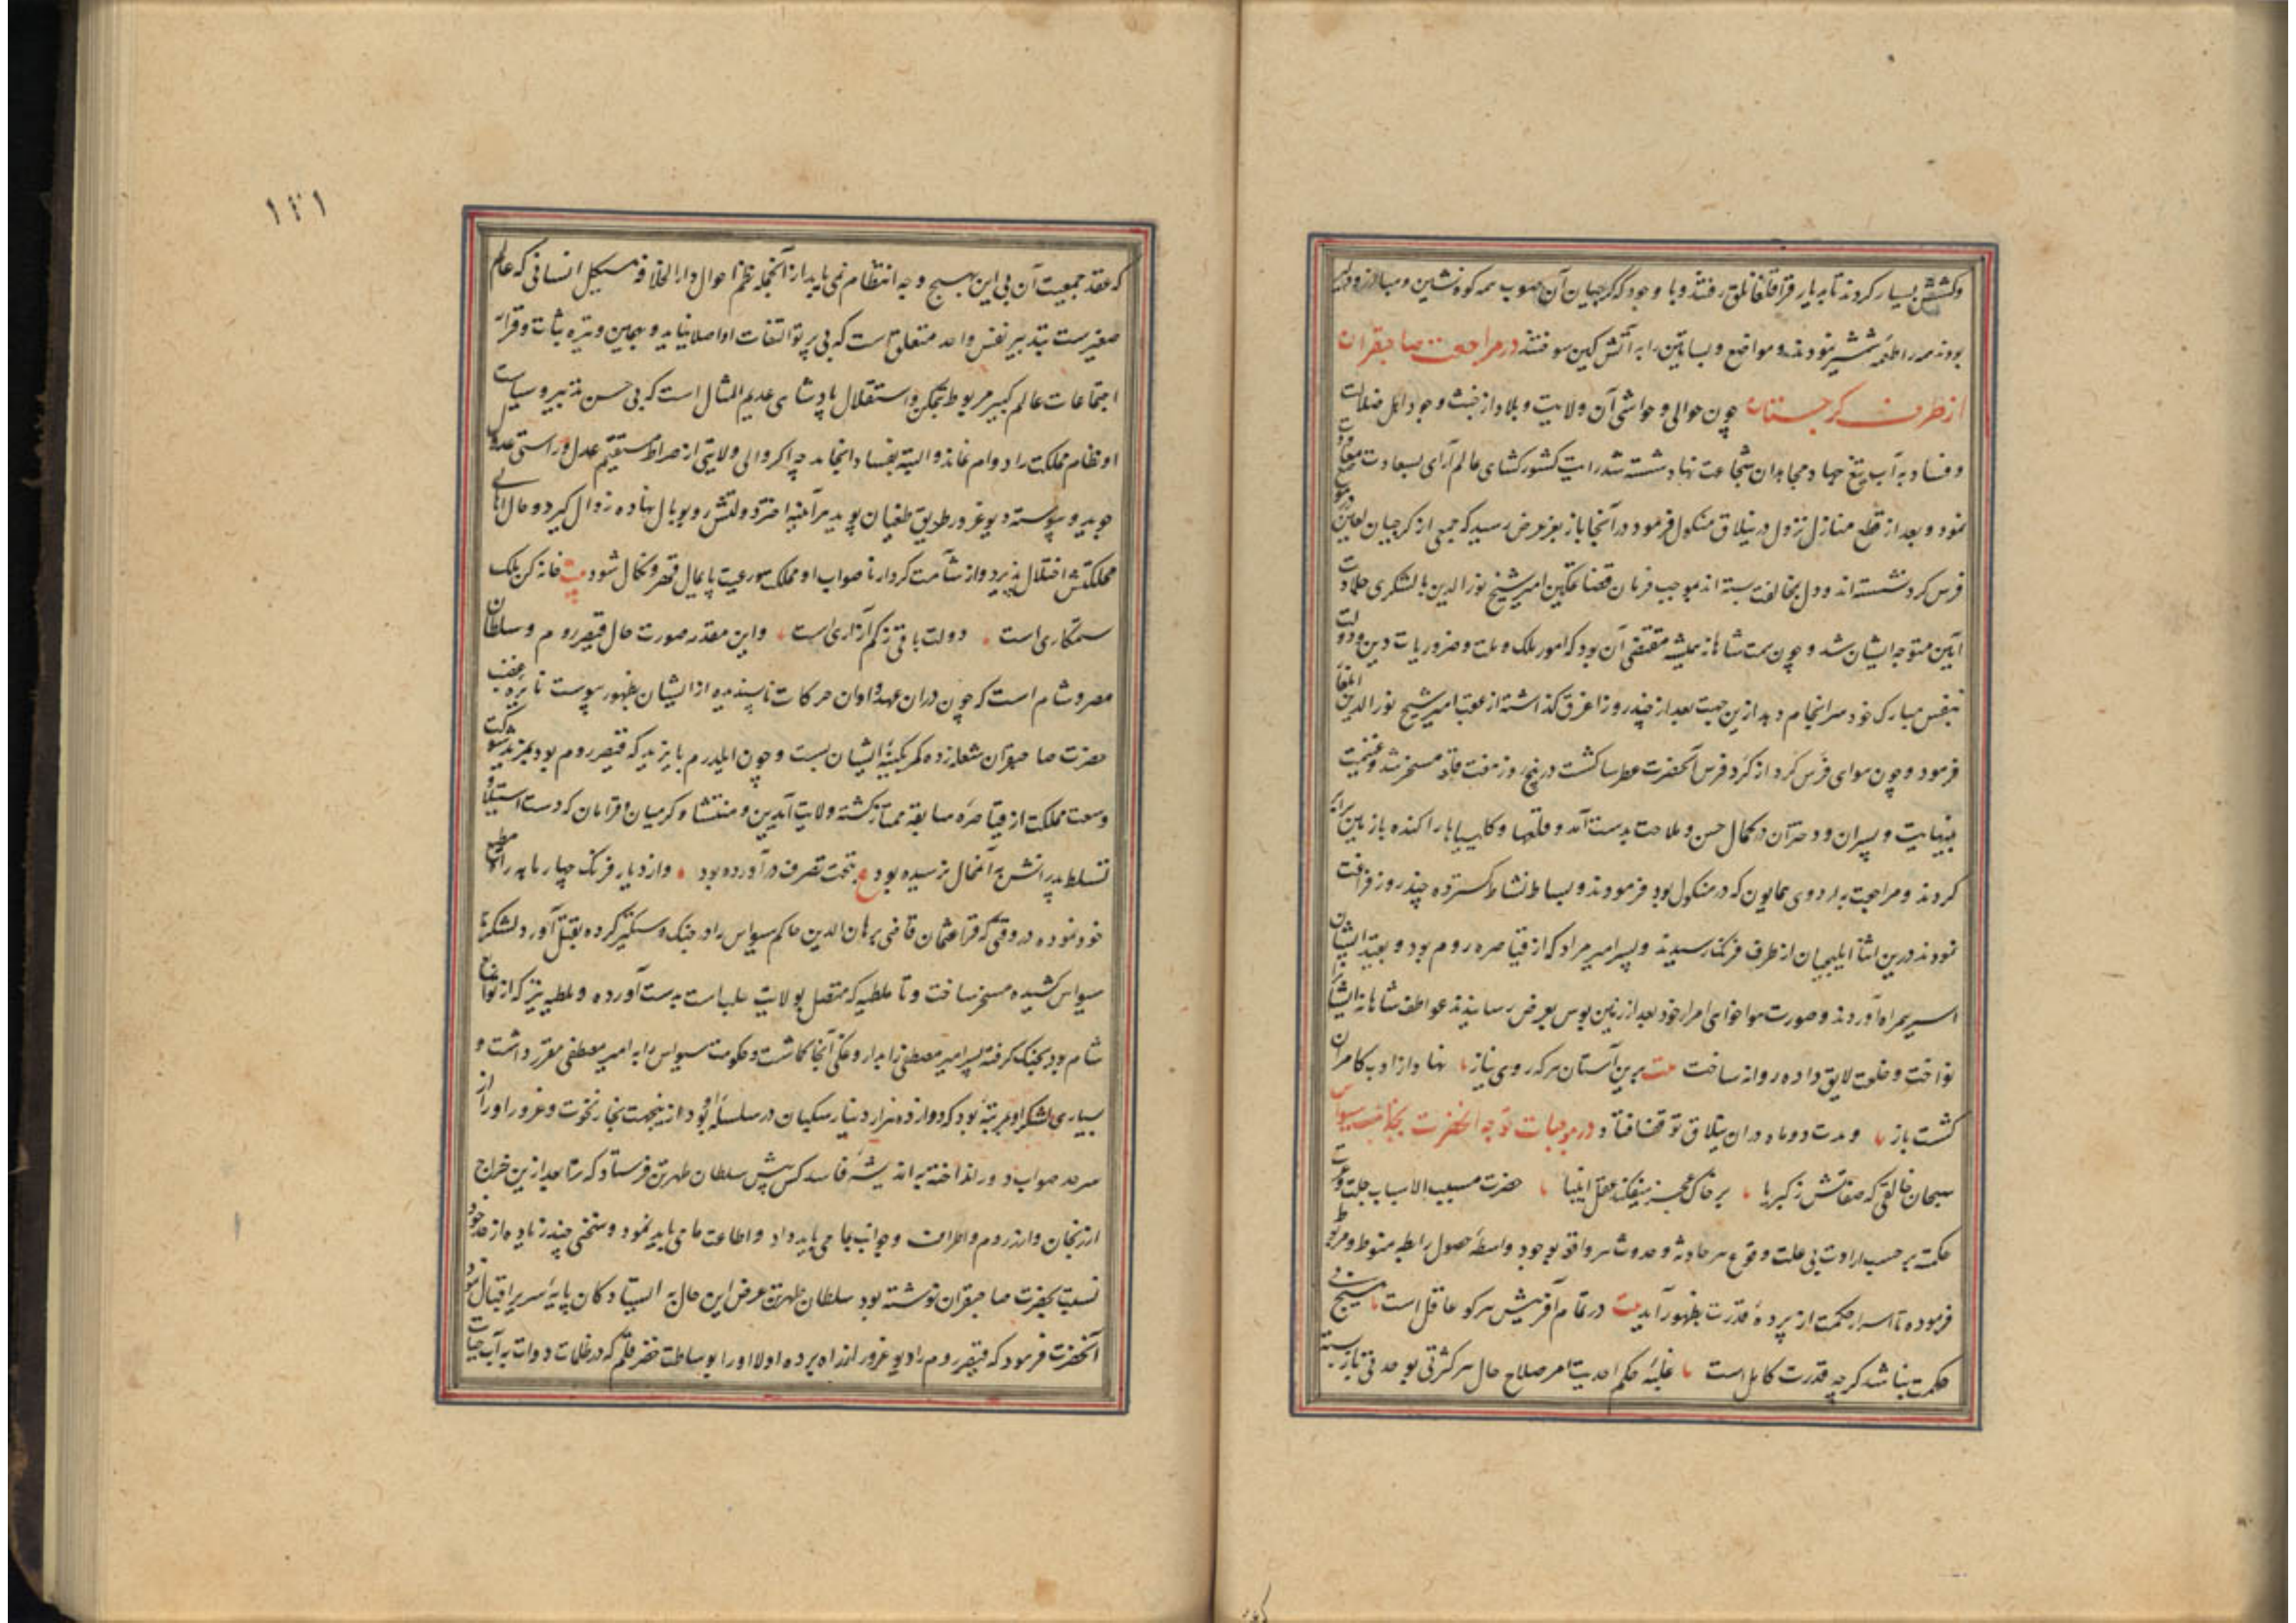 وکشش بسیار کردند تا بدیار قراقلقانلق رفتند و با وجود که گرجیان آن صوب همه کوه نشین و مبارز و دلیر
بودند همه را طعمه شمشیر نمودند و مواضع و بساتین را به آتش کین سوختند در مراجعت صاحبقران
از طرف گرجستان چون حوالی و حواشی آن ولایت و بلاد از خبث وجود اهل ضلالت
و فساد به آب تیغ جهاد مجاهدان شجاعت نهاد شسته شد رایت کشورکشای عالم آرای بسعادت معاودت
نمود و بعد از قطع منازل نزول در ییلاق منکول فرمود در آنجا باز بعز عرض رسید که جمعی از گرجیان لعین در موضع
فرس کرد نشسته اند و دل بمخالفت بسته اند بموجب فرمان قضا تمکین امیر شیخ نور الدین با لشکری جلادت
آیین متوجه ایشان شد و چون همت شاهانه همیشه مقتضی آن بود که امور ملک و ملت و ضروریات دین و دولت
بنفس مبارک خود سرانجام دهد ازین جهت بعد از چند روز اغرق گذاشته از عقب امیر شیخ نور الدین ایلغار
فرمود و چون هوای فرس کرد از گرد فرس آنحضرت عطرسا گشت در پنج روز هفت قلعه مسخر شد و غنیمت
بینهایت و پسران و دختران در کمال حسن و ملاحت بدست آمد و قلعها و کلیسیاها را کنده باز زمین برابر
کردند و مراجعت به اردوی همایون که در منکول بود فرمودند و بساط نشاط گسترده چند روز فراغت
نمودند درین اثنا ایلچیان از طرف فرنک رسیدند و پسر امیر مراد که از قیاصره روم بود و بقید ایشان
اسیر همراه آوردند و صورت هواخواهی امراء خود بعد از زمین بوس بعرض رسانیدند عواطف شاهانه ایشان را
نواخت و خلعت لایق داده روانه ساخت بیت برین آستان هر که روی نیاز نهاد از ادب کامران
گشت باز و مدت دو ماه در ان ییلاق توقف افتاد در موجبات توجه آنحضرت بجانب سیواس
سبحان خالقی که صفاتش ز کبریا بر خاک عجز میفکند عقل انبیا حضرت مسبب الاسباب جلت قدرته
حکمت بر حسب ارادت بی علت وقوع هر حادثه و حدوث هر واقعه بوجود واسطه حصول رابطه منوط و مربوط
فرموده تا اسرار حکمت از پرده قدرت بظهور آید بیت در تمام آفرینش هر کو عاقل است هیچ بی
حکمت نباشد کرچه قدرت کامل است غلبه حکم احدیت امر صلاح حال هر کثرتی بوحدتی باز بسته
۱۲۱
که عقد جمعیت آن بی این بهیچ وجه انتظام نمی یابد از آنجمله نظم احوال دار الخلافه هیکل انسانی که عالم
صغیرست بتدبیر نفس واحد متعلق است که بی پرتو التفات او اصلا نیاید و بهمین وتیره ثبات و قرار
اجتماعات عالم کبیر مربوط بتمکن و استقلال پادشاهی عدیم المثال است که بی حسن تدبیر و سیاست
او نظام مملکت را دوام نماند و البته بفساد انجامد چه اگر والی ولایتی از صراط مستقیم عدل و راستی عدول
جوید و پیوسته دیو غرور طریق طغیان پوید هر آینه اختر دولتش رو بوبال نهاده زوال گیرد و حال اهالی
مملکتش اختلال پذیرد و از شآمت کردار ناصواب او مملکت و رعیت پایمال قهر و نکال شود بیت خانه کن ملک
ستمکاری است دولت باقی ز کم آزاری است واین مقدمه صورت حال قیصر روم و سلطان
مصر و شام است که چون در ان عهد و اوان حرکات ناپسندیده از ایشان بظهور پیوست نایره غضب
حضرت صاحبقران شعله زده کمر بکینه ایشان بست و چون ایلدرم بایزید که قیصر روم بود بمزید شوکت
وسعت مملکت از قیاصره سابقه ممتاز گشته ولایت آیدین و منتشا و کرمیان و قرامان که دست استیلا و
تسلط پدرانش به آنمحال نرسیده بود ع بتحت تصرف در آورده بود و از دیار فرنک چهار ماهه راه مطیع
خود نموده در وقتی که قرا عثمان قاضی برهان الدین حاکم سیواس را در جنک دستگیر کرده بقتل آورد لشکر تا
سیواس کشیده مسخر ساخت و تا ملطیه که متصل بولایت حلب است بدست آورده و ملطیه نیز که از توابع
شام بود بجنک گرفته پسر امیر مصطفی را بداروغکی آنجا گماشت و حکومت سیواس را به امیر مصطفی مقرر داشت و
بسیاری لشکر او بمرتبه بود که دوازده هزار سکبان در سلسله او بود ازینجهت بخار نخوت و غرور او را از
سرحد صواب دور انداخته به اندیشه فاسد کس پیش سلطان طهرتن فرستاد که تا بعد ازین خراج
ارزنجان و ارزروم و اطراف و جوانب بما می باید داد و اطاعت ما می باید نمود و سخنی چند زیاده از حد خود
نسبت بحضرت صاحبقران نوشته بود سلطان طهرتن عرض این حال به ایستادکان پایه سریر اقبال نمود
آنحضرت فرمود که قیصر روم را دیو غرور از راه برده اولا او را بوساطت خضر قلم که در ظلمات دوات به آب حیات